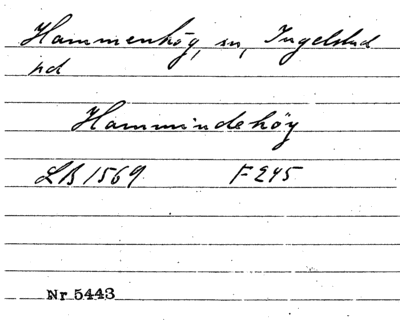 Hammenhög, sn, Ingelstad
hd
Hammindehöy
LB 1569 F 245
Nr 5443